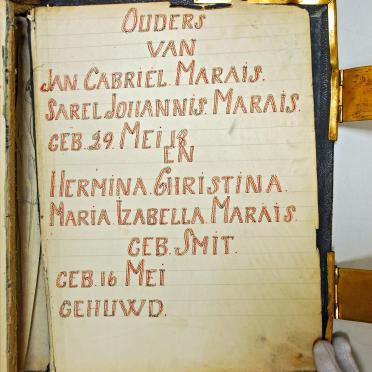 OUDERS
VAN
JAN. GABRIEL. MARAIS.
SAREL JOHANNIS. MARAIS.
GEB. 29. MEI 18
EN
HERMINA. CHRISTINA.
MARIA. IZABELLA. MARAIS.
GEB. SMIT.
GEB. 16 MEI
GEHUWD.